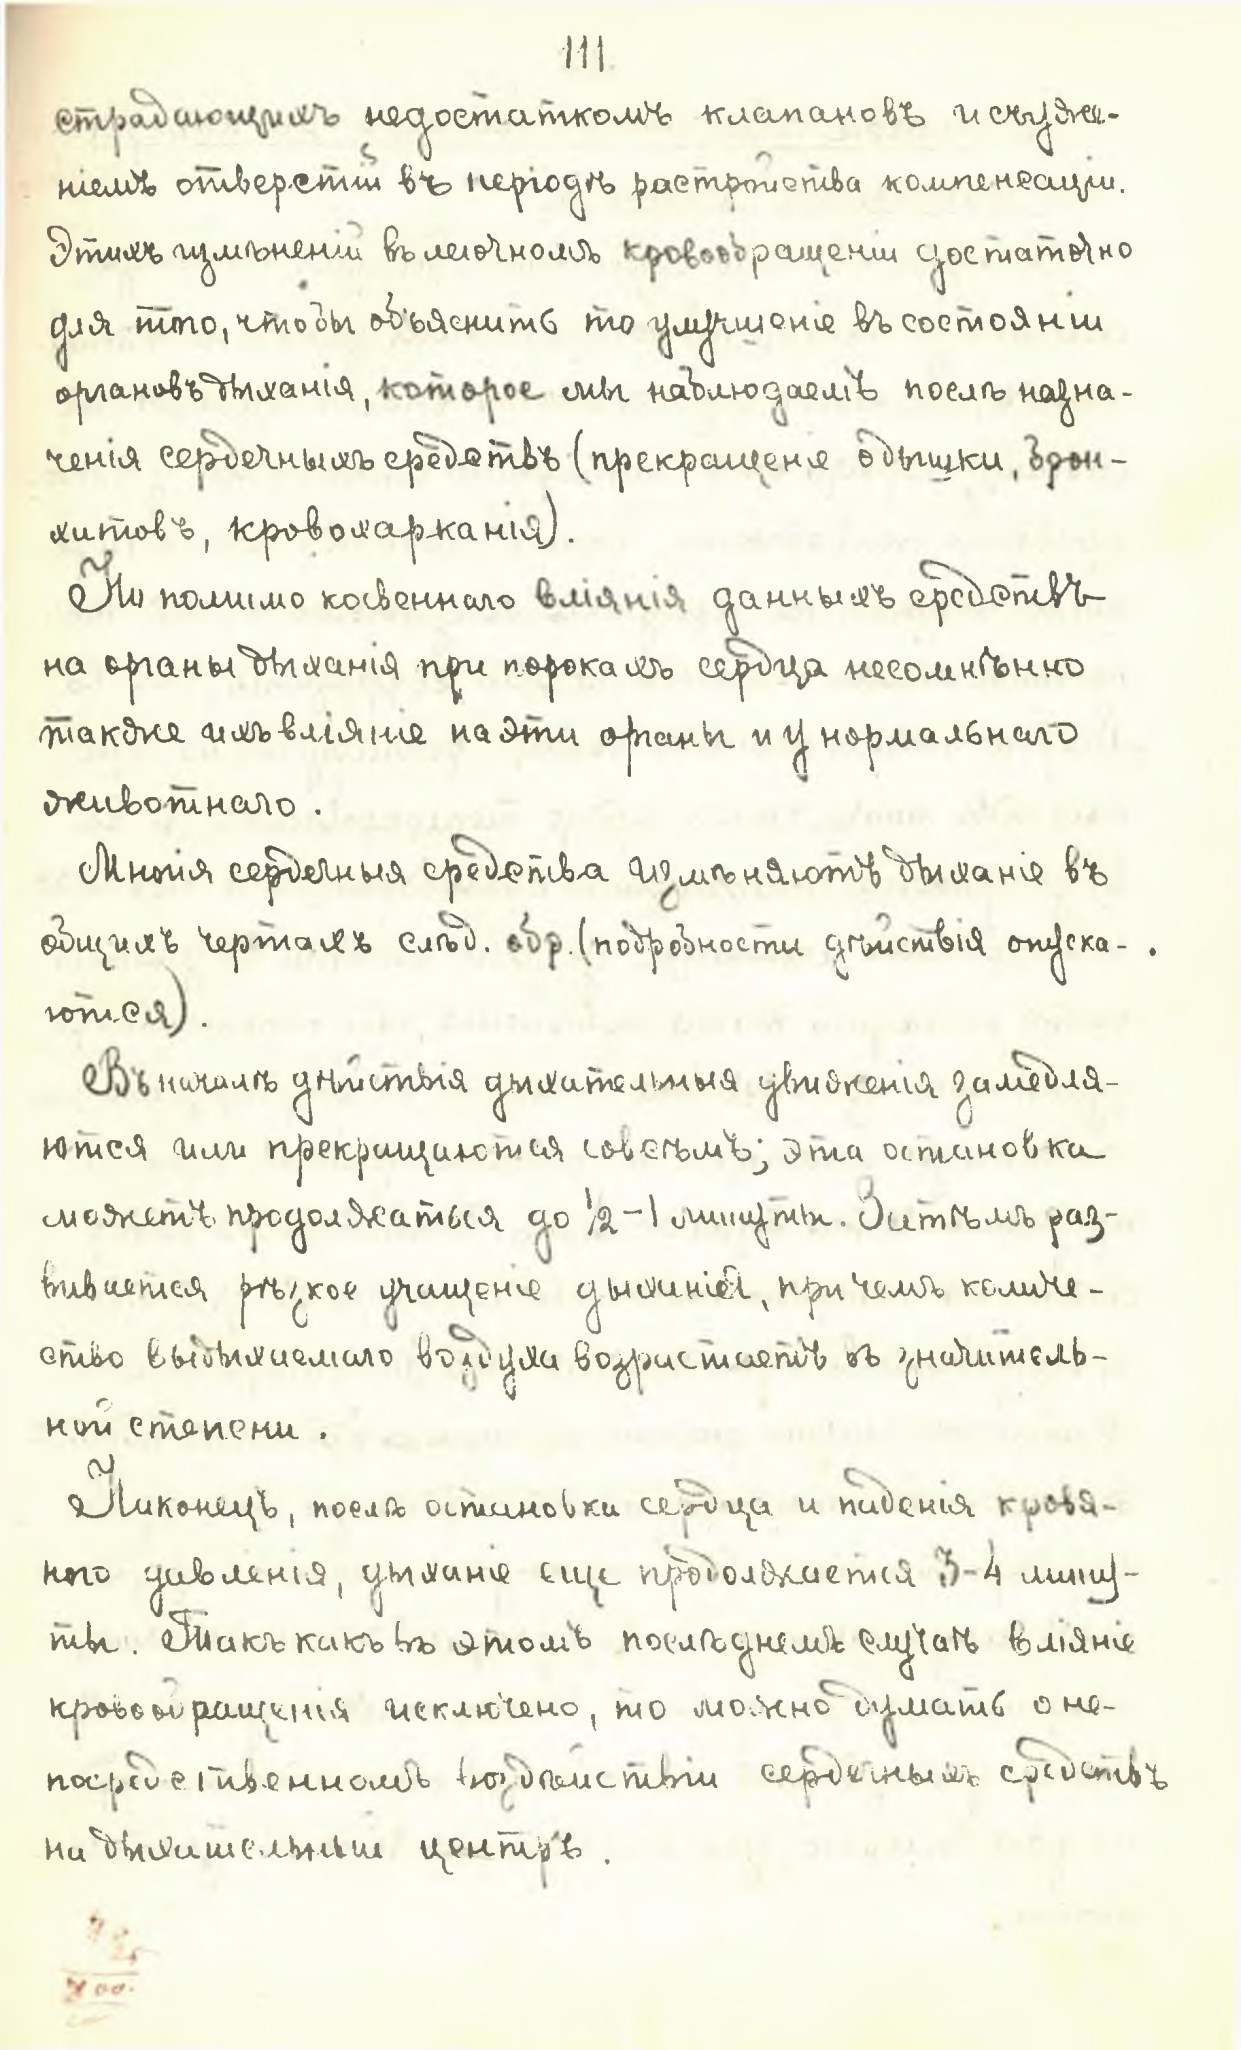 111
страдающихъ недостаткомъ клапановъ и съуже-
ніемъ отверстій въ періодъ растройства компенсаціи.
Этихъ измѣненій въ легочномъ кровообращеніи достаточно
для того, чтобы объяснить то улучшеніе въ состояніи
органовъ дыханія, которое мы наблюдаемъ послѣ назна-
ченія сердечныхъ средствъ (прекращеніе одышки, брон-
хитовъ, кровохарканія).
Но помимо косвеннаго вліянія данныхъ средствъ
на органы дыханія при порокахъ сердца несомнѣнно
также ихъ вліяніе на эти органы и у нормальнаго
животнаго.
Многія сердечныя средства измѣняютъ дыханіе въ
общихъ чертахъ слѣд. обр. (подробности дѣйствія опуска-
ются).
Въ началѣ дѣйствія дыхательныя движенія замедля-
ются или прекращаются совсѣмъ; эта остановка
можетъ продолжаться до ½-1 минуты. Затѣмъ раз-
вивается рѣзкое учащеніе дыханій, при чемъ количе-
ство выдыхаемаго воздуха возрастаетъ въ значитель-
ной степени.
Наконецъ, послѣ остановки сердца и паденія кровя-
ного давленія, дыханіе еще продолжается 3-4 мину-
ты. Такъ какъ въ этомъ послѣднемъ случаѣ вліяніе
кровообращенія исключено, то можно думать о не-
посредственномъ воздѣйствіи сердечныхъ средствъ
на дыхательный центръ.